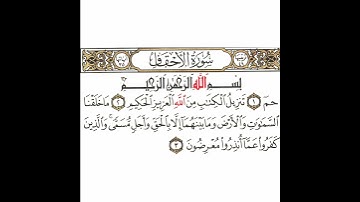 سُورَةُ الأَحْقَافِ
بِسْمِ اللَّهِ الرَّحْمَٰنِ الرَّحِيمِ
حمٓ ١ تَنزِيلُ الْكِتَٰبِ مِنَ اللَّهِ الْعَزِيزِ الْحَكِيمِ ٢ مَا خَلَقْنَا
السَّمَٰوَٰتِ وَالْأَرْضَ وَمَا بَيْنَهُمَآ إِلَّا بِالْحَقِّ وَأَجَلٍ مُّسَمًّى ۚ وَالَّذِينَ
كَفَرُوا عَمَّآ أُنذِرُوا مُعْرِضُونَ ٣